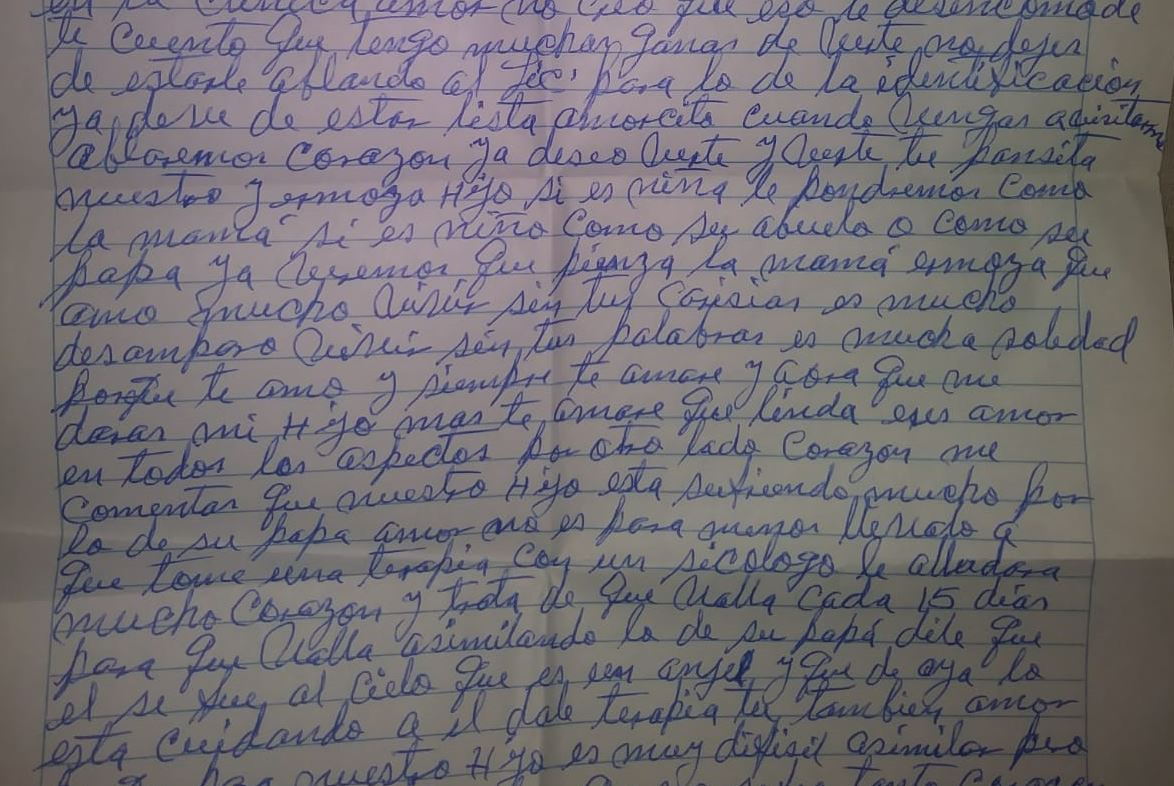 en la clinica amor no creo que eso te desencomode
te cuento que tengo muchas ganas de verte no dejes
de estarle ablando al lic. para lo de la identificación
ya deve de estar lista amorcito cuando vengas avisitarme
ablaremos corazon ya deseo verte y verte tu pansita
nuestro y ermoza Hijo si es niña le pondremos como
la mamá si es niño como su abuelo o como su
papa ya veremos que pienza la mamá ermoza que
amo mucho vivir sin tus carisias es mucho
desamparo vivir sin tus palabras es mucha soledad
porque te amo y siempre te amare y aora que me
daras mi Hijo mas te amare que linda eres amor
en todos los aspectos por otro lado corazon me
comentas que nuestro Hijo esta sufriendo mucho por
lo de su papa amor no es para menos llevalo a
que tome una terapia con un sicologo le alludara
mucho corazon y trata de que valla cada 15 dias
para que valla asimilando lo de su papá dile que
el se fue al cielo que es un anjel y que de aya lo
esta cuidando a el dale terapia tu tambien amor
nuestro Hijo es muy dificil asimilar pero